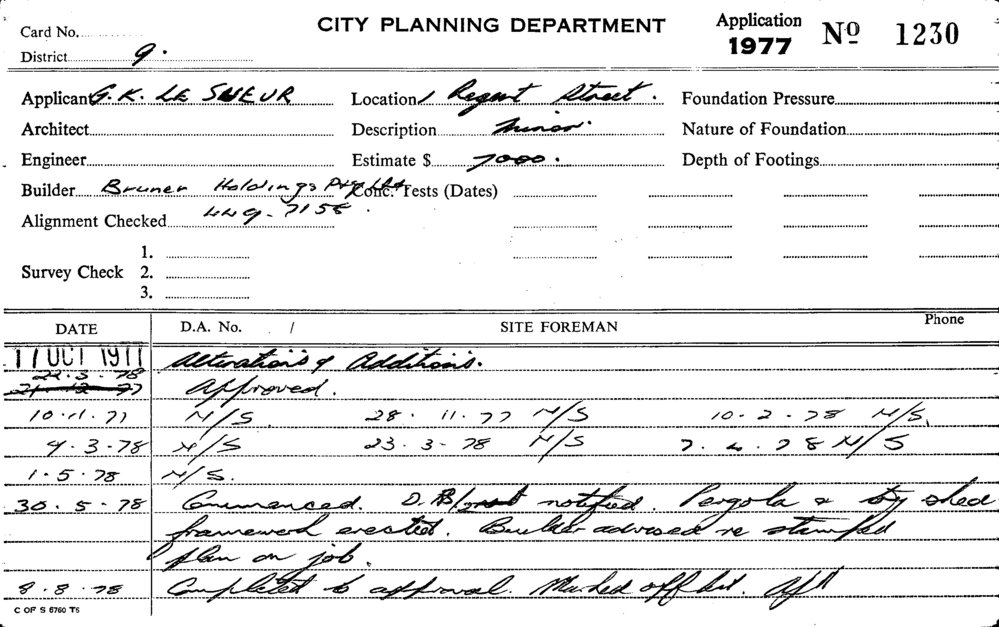 Card No.
CITY PLANNING DEPARTMENT
Application 1977 No 1230
District 9.
Applicant G. K. LE SUEUR Location 1 Regent Street. Foundation Pressure
Architect Description Minor. Nature of Foundation
Engineer Estimate $ 7000. Depth of Footings
Builder Bruner Holdings Pty Ltd Conc. Tests (Dates)
Alignment Checked 449-7158.
1.
Survey Check 2.
3.
DATE D.A. No. / SITE FOREMAN Phone
17 OCT 1977 Alterations & Additions.
22.3.78
21.12.77 Approved.
10.11.77 N/S. 28.11.77 N/S 10-2-78 N/S.
9.3.78 N/S 23.3.78 N/S 7.4.78 N/S
1.5.78 N/S.
30.5.78 Commenced. notified. Pergola & shed
framework erected. Builder advised re stamped
plan on job.
8.8.78 Completed to approval. Marked off
C OF S 6760 T6